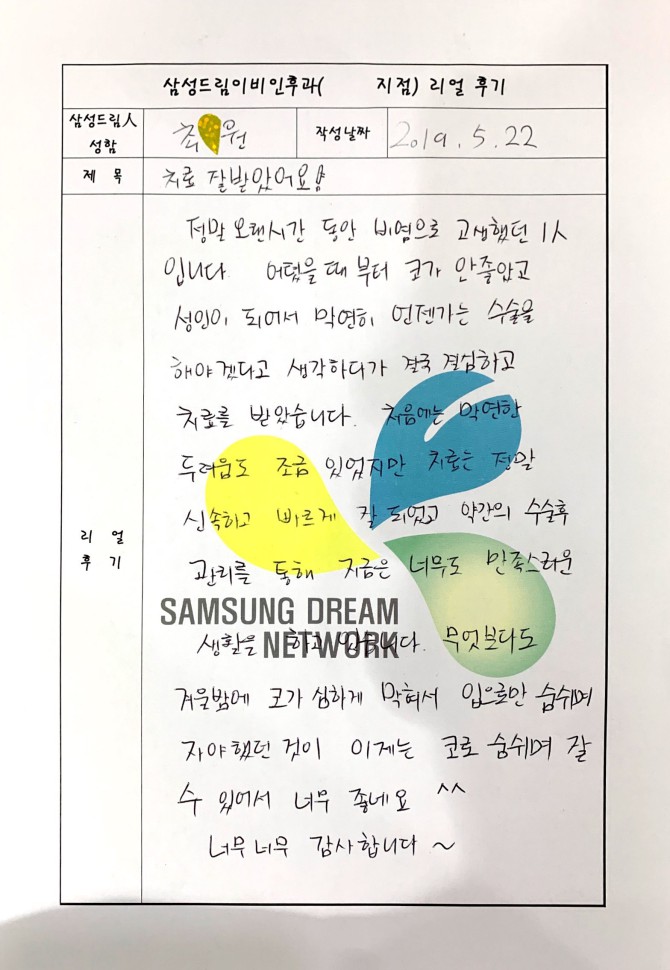 삼성드림이비인후과( 지점) 리얼 후기
삼성드림人 성함 최 원 작성날짜 2019.5.22
제 목 치료 잘받았어요
리얼 후기
정말 오랜시간 동안 비염으로 고생했던 1人
입니다. 어렸을때 부터 코가 안좋았고
성인이 되어서 막연히 언젠가는 수술을
해야겠다고 생각하다가 결국 결심하고
치료를 받았습니다. 처음에는 막연한
두려움도 조금 있었지만 치료는 정말
신속하고 바르게 잘 되었고 약간의 수술후
관리를 통해 지금은 너무도 만족스러운
생활을 하고 있습니다. 무엇보다도
겨울밤에 코가 심하게 막혀서 입으로만 숨쉬며
자야했던 것이 이제는 코로 숨쉬며 잘
수 있어서 너무 좋네요 ^^
너무너무 감사합니다 ~
SAMSUNG DREAM
NETWORK